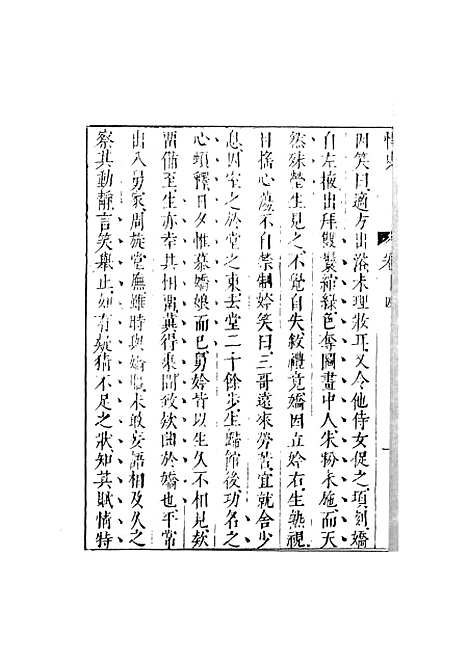 卷十四
因笑曰適方出浴未理妝耳又令他侍女促之頃刻嬌
自左掖出拜雙鬟綰綠色奪圖畫中人朱粉未施而天
然殊瑩生見之不覺自失敘禮竟嬌因立妗右生熟視
目搖心蕩不自禁制妗笑曰三哥遠來勞苦宜就舍少
息因室之於堂之東去堂二十餘步生歸館後功名之
心頓釋日夕惟慕嬌娘而已舅妗皆以生久不相見款
留備至生亦幸其相留冀得乘間致款曲於嬌也平常
出入舅家周旋堂廡雖時與嬌晤未敢妄語相及久之
察其動靜言笑舉止如有疑猜不足之狀知其賦情特